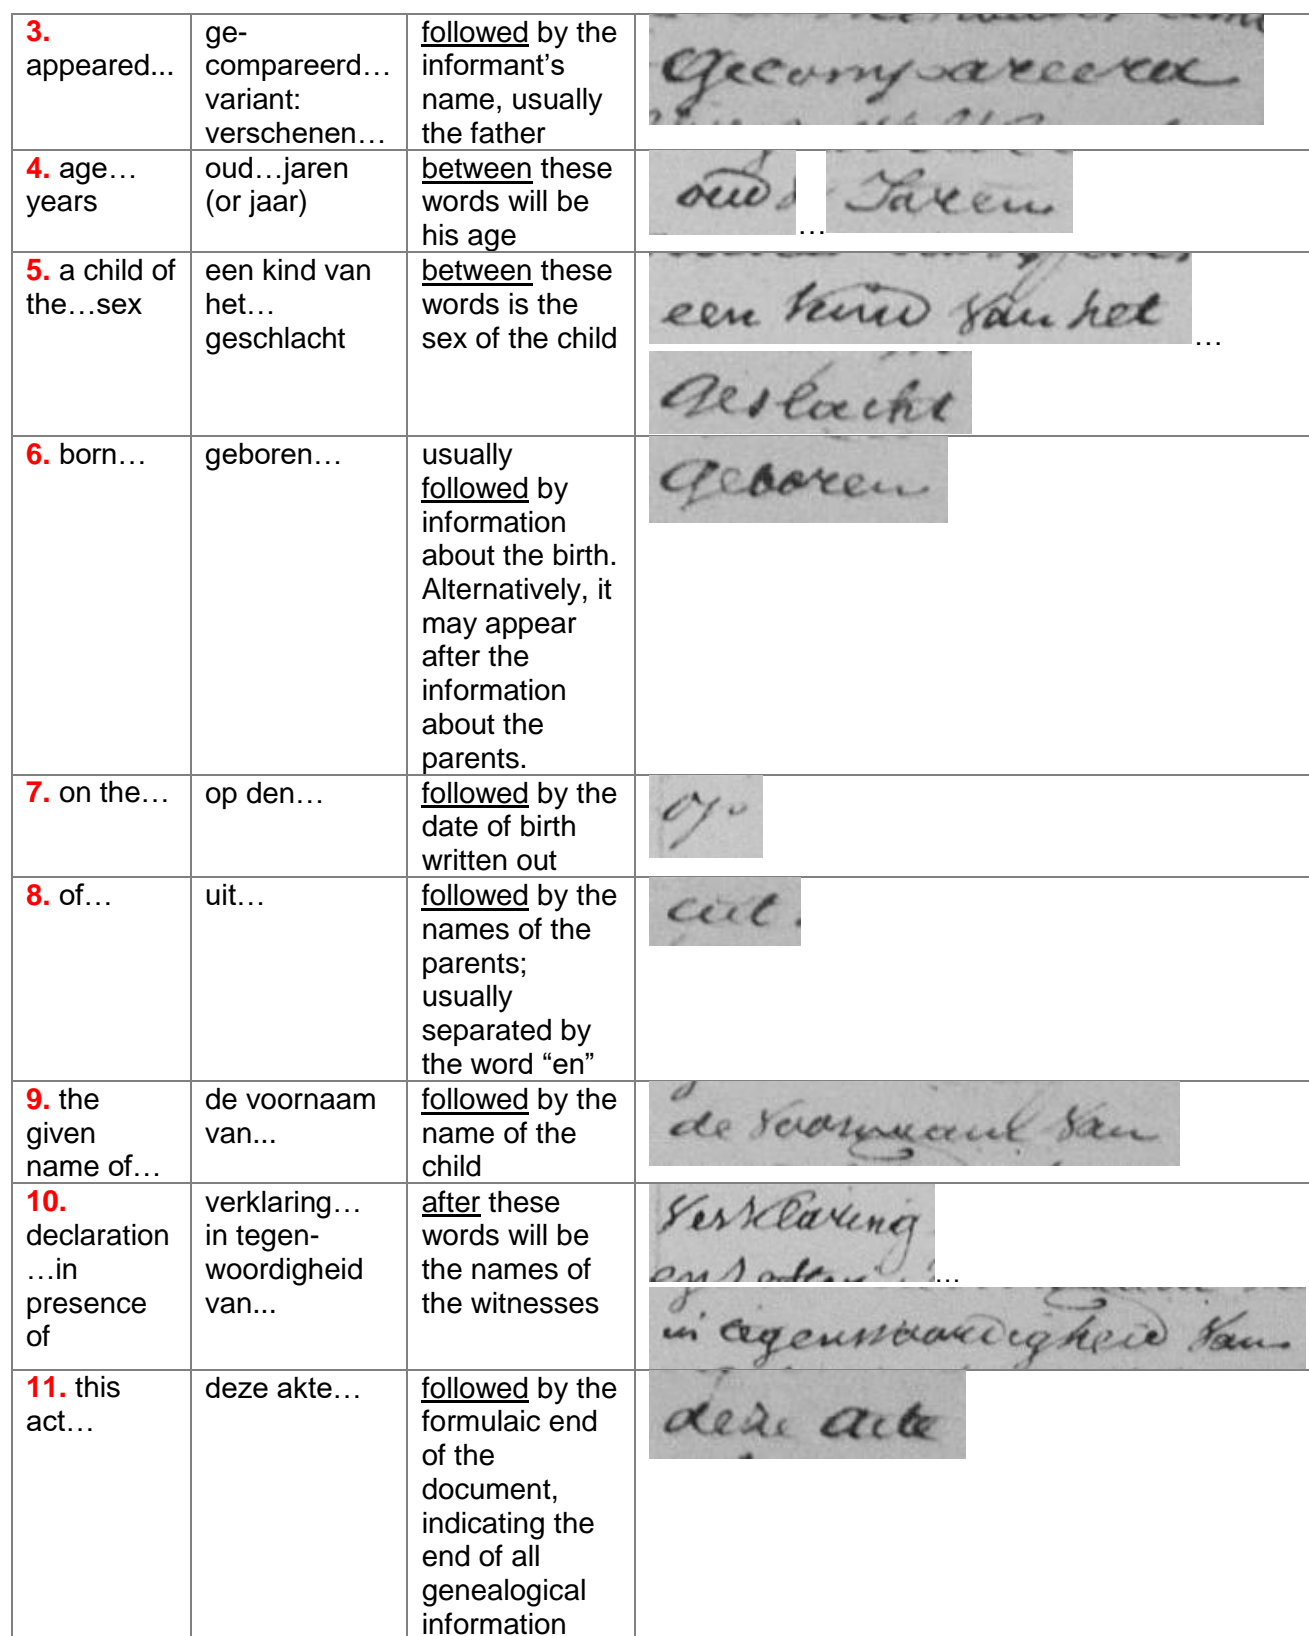 3.
appeared...
ge-
compareerd…
variant:
verschenen…
followed by the
informant’s
name, usually
the father
Gecompareerd
4. age…
years
oud…jaren
(or jaar)
between these
words will be
his age
oud
…
Jaren
5. a child of
the…sex
een kind van
het…
geschlacht
between these
words is the
sex of the child
een kind van het
…
Geslacht
6. born…
geboren…
usually
followed by
information
about the birth.
Alternatively, it
may appear
after the
information
about the
parents.
Geboren
7. on the…
op den…
followed by the
date of birth
written out
op
8. of…
uit…
followed by the
names of the
parents;
usually
separated by
the word “en”
uit
9. the
given
name of…
de voornaam
van...
followed by the
name of the
child
de voornaam van
10.
declaration
…in
presence
of
verklaring…
in tegen-
woordigheid
van...
after these
words will be
the names of
the witnesses
Verklaring
…
in van
11. this
act…
deze akte…
followed by the
formulaic end
of the
document,
indicating the
end of all
genealogical
information
deze acte